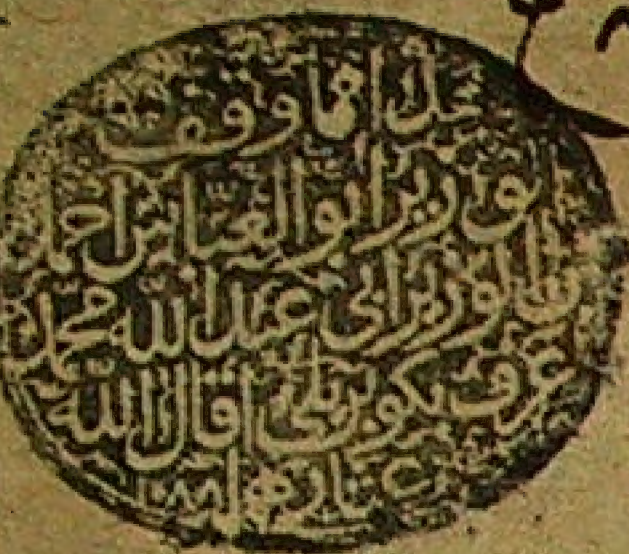 وقف
الوزير ابو العباس احمد
بن الوزير ابي عبد الله محمد
عرف بكوبريلي اقال الله
عثارهما ١٠٨٨